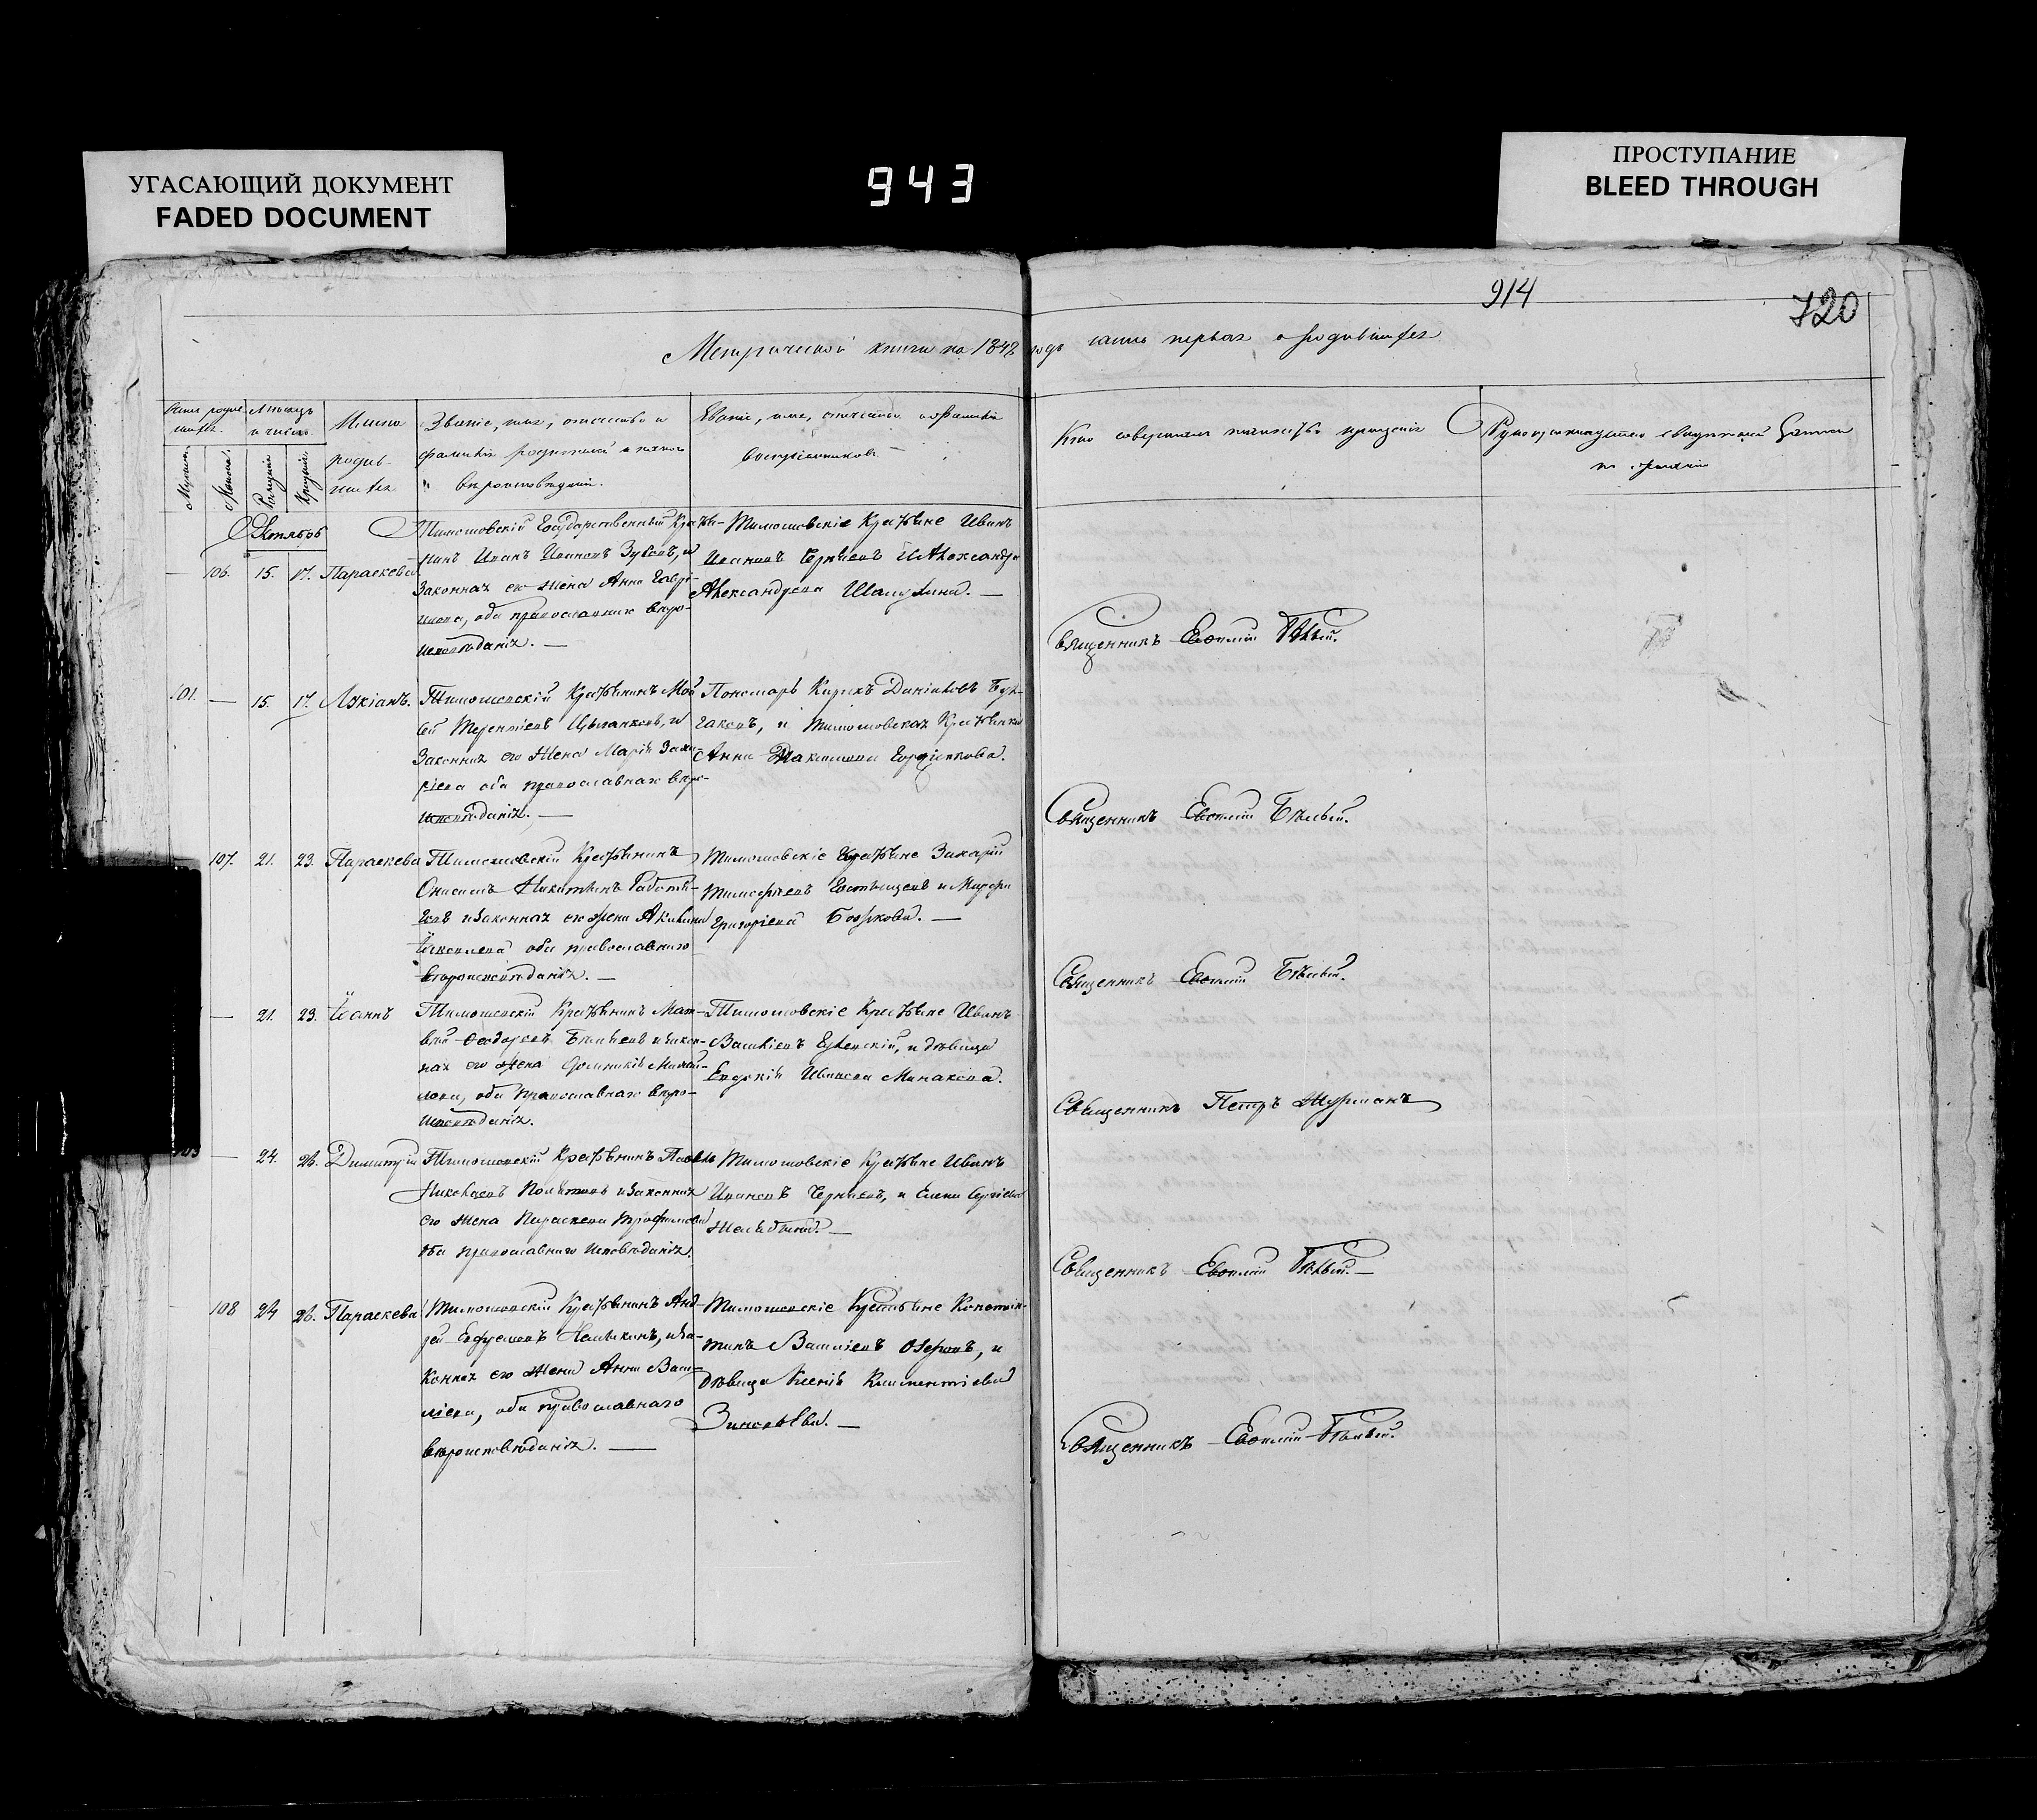 УГАСАЮЩИЙ ДОКУМЕНТ
FADED DOCUMENT
943
ПРОСТУПАНИЕ
BLEED THROUGH
914
720
Метрической книги на 1842 годъ часть первая о родившихся
Мѣсяцъ
и число.
Имена
родив-
шихся
Званіе, имя, отчество и
фамилія родителей и какого
вѣроисповѣданія.
Званіе, имя, отчество и фамилія
воспріемниковъ
Кто совершалъ таинство крещенія
Рукоприкладство свидѣтелей записи
по желанію
Октябрь
106. 15. 17. Параскева
Тимошовскій Государственный Крестья-
нинъ Иванъ Ивановъ Зубовъ, и
Законная его жена Анна Гаврі-
илова, оба православнаго вѣро-
исповѣданія. —
Тимошовскіе Крестьяне Иванъ
Ивановъ Черняевъ и Александра
Александрова —
Священникъ Евѳимій Бѣлый.
101. — 15. 17. Лукіанъ.
Тимошевскій Крестьянинъ Мой
сей Терентіевъ Цыганковъ, и
Законная его жена Марія Заха
ріева оба православнаго вѣро-
исповѣданія. —
Пономарь Кирикъ Даніиловъ
и Тимошовская Крестьянка
Анна Максимова
Священникъ Евѳимій Бѣлый.
107. 21. 23. Параскева
Тимошовскій Крестьянинъ
Онисимъ Никитинъ
и Законная его жена Акилина
Іаковлева оба православнаго
вѣроисповѣданія. —
Тимошовскіе Крестьяне Захарій
Тимофѣевъ и Марфа
Григоріева —
Священникъ Евѳимій Бѣлый.
— 21. 23. Іоаннъ
Тимошевскій Крестьянинъ Мат-
вѣй Ѳеодоровъ и закон-
ная его жена Михай-
лова, оба православнаго вѣро-
исповѣданія.
Тимошовскіе Крестьяне Иванъ
Василіевъ и дѣвица
Евдокія Иванова Минакова.
Священникъ Петръ
103 — 24. 26. Димитрій
Тимошевскій Крестьянинъ Павелъ
Николаевъ и Законная
его жена Параскева Трофимова
оба православнаго исповѣданія.
Тимошовскіе Крестьяне Иванъ
Ивановъ Черняевъ, и Елена Сергіева
Священникъ Евѳимій Бѣлый. —
108 24 26. Параскева
Тимошовскій Крестьянинъ Анд-
рей и за-
конная его жена Анна Васи-
ліева, оба православнаго
вѣроисповѣданія. —
Тимошовскіе Крестьяне Констан-
тинъ Василіевъ Озеровъ, и
дѣвица Ксенія Климентіева
Зиновьева. —
Священникъ Евѳимій Бѣлый.